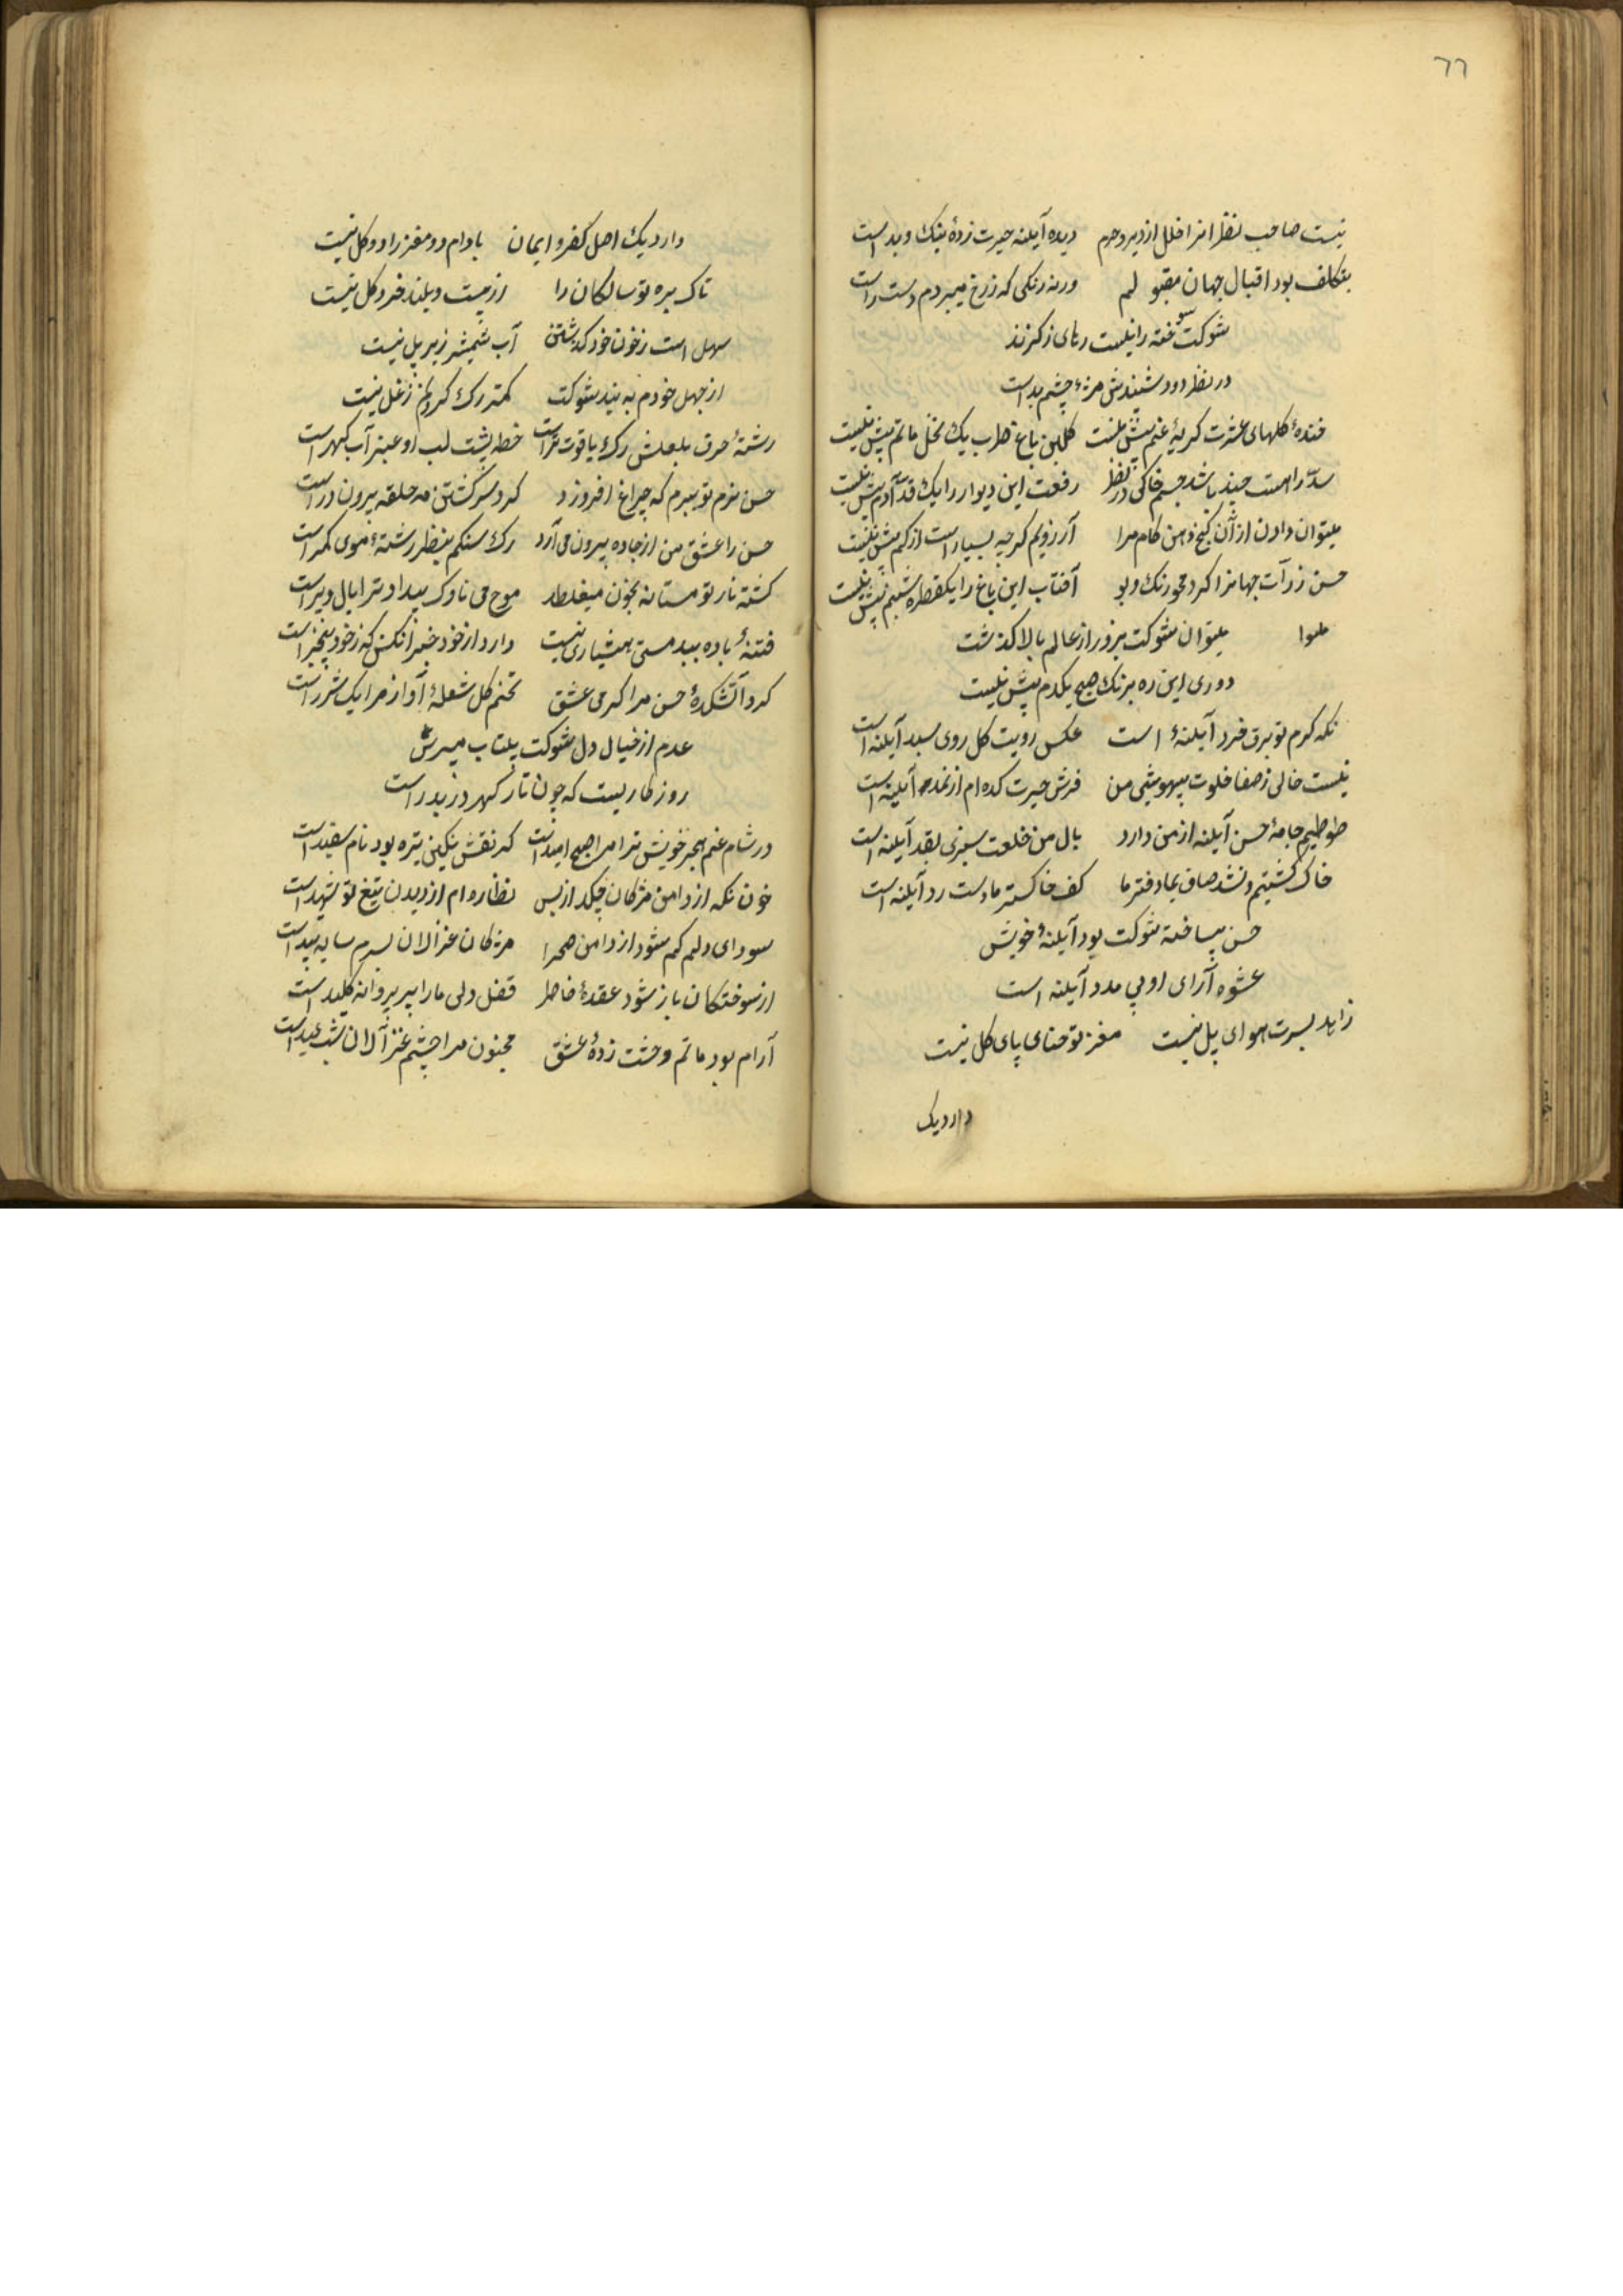 ٦٦
نیست صاحب نظرانرا خلل از دیر و حرم دیده آیلنه حیرت زدهٔ نیک و بد است
بتکلف بود اقبال جهان مقبولم ورنه رنکی که ز رخ میبردم دست رد است
شوکت سوخته را نیست رهای ز کزند
در نظر دود سپندش مژهٔ چشم بد است
خندهٔ کلهای عشرت کریهٔ غم بیش نیست کلبن باغ طرب یک نخل ماتم بیش نیست
سدّ راهت چند باشد جسم خاکی در نظر رفعت این دیوار را یک قد آدم بیش نیست
میتوان دادن از آن کنج دهن کام مرا آرزویم کرچه بسیار است از کم بیش نیست
حسن ذرات جهانرا کرد محو رنک و بو آفتاب این باغ را یکقطره شبنم بیش نیست
میتوان شوکت بزور از عالم بالا کذشت
دوری این ره برنک صبح یکدم بیش نیست
نکه کرم تو برق خرد آیلنهٔ است عکس رویت کل روی سبد آیلنه است
نیست خالی ز صفا خلوت بیهوشی من فرش حیرت کده ام از نمد آیلنه است
طوطیم جامهٔ حسن آیلنه از من دارد بال من خلعت سبزی بقد آیلنه است
خاک کشتیم و نشد صاف بما دفتر ما کف خاکستر ما دست رد آیلنه است
حسن بیساخته شوکت بود آیلنهٔ خویش
عشوه آرای او بی مدد آیلنه است
زاهد بسرت هوای پل نیست مغز تو حنای پای کل نیست
دارد یک
دارد یک اصل کفر و ایمان بادام دو مغز را دو کل نیست
تاک بره تو سالکان را از پست و بلند خر و کل نیست
سهل است ز خون خود کذشتن آب شمشیر زیر پل نیست
از جهل خودم به بند شوکت کمتر رک کردنم ز غل نیست
رشتهٔ حرف بلعلش رک یاقوت تر است خط پشت لب او عنبر آب کهر است
حسن بزم تو ببرم که چراغ افروزد کرد سر کشتن مه حلقه بیرون در است
حسن را عشق من از جاده بیرون می آرد رک سنکم بنظر رشتهٔ موی کمر است
کشته ناز تو مستانه بخون میغلطد موج می ناوک بیداد ترا بال و پر است
فتنهٔ باده ببد مستی هشیاری نیست دارد از خود خبر آنکس که ز خود بیخبر است
کرد آتشکدهٔ حسن مرا کرمی عشق تخم کل شعلهٔ آواز مرا یک شرر است
عدم از خیال دل شوکت بیتاب مپرس
روزکاریست که چون تار کهر در بدر است
در شام غم هجر خویش ترا مرا صبح امید است که نقش نکین تیره بود نام سفید است
خون نکه از دامن مژکان چکد از بس نظاره ام از دیدن تیغ تو شهید است
سودای دلم کم شود از دامن صحرا مژکان غزالان بسرم سایه بید است
از سوختکان باز شود عقدهٔ خاطر قفل دلی ما را پر پروانه کلید است
آرام بود ماتم وحشت زدهٔ عشق مجنون مرا چشم غزالان شب عید است